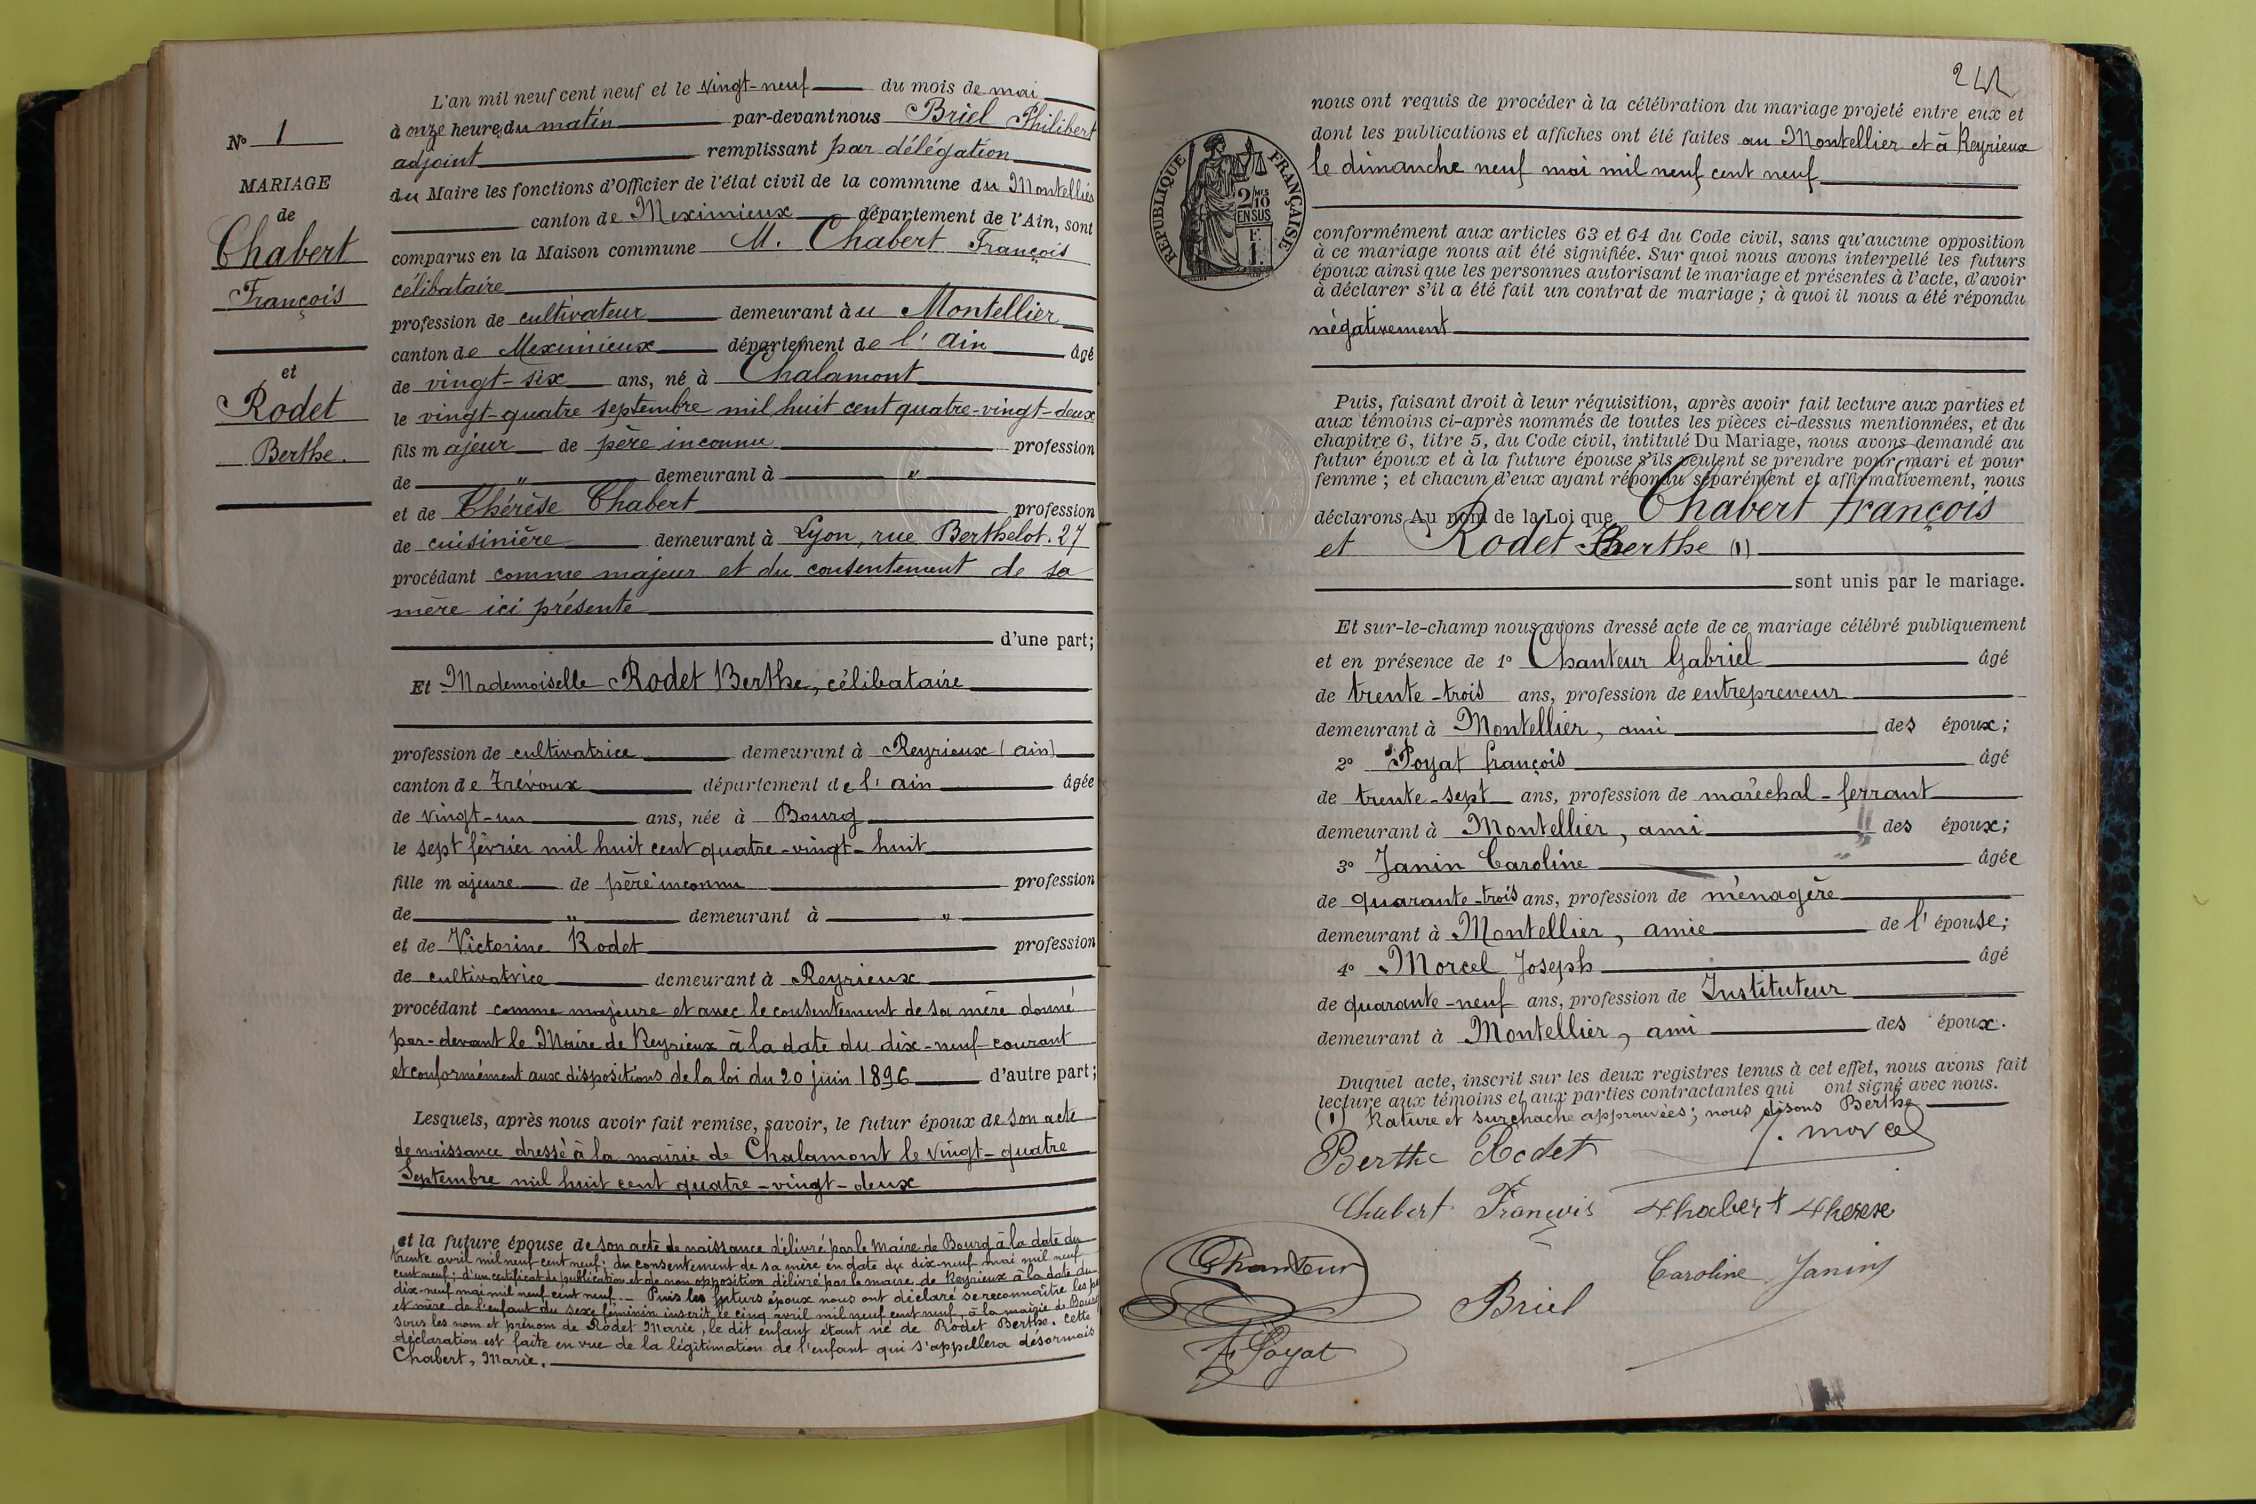 N° 1
MARIAGE
de
Chabert
François
et
Rodet
Berthe.
L'an mil neuf cent neuf et le vingt-neuf du mois de mai
à onze heures du matin par-devant nous Briel Philibert
adjoint remplissant par délégation
du Maire les fonctions d'Officier de l'état civil de la commune du Montellier
canton de Meximieux département de l'Ain, sont
comparus en la Maison commune M. Chabert François
célibataire
profession de cultivateur demeurant au Montellier
canton de Meximieux département de l'Ain âgé
de vingt-six ans, né à Chalamont
le vingt-quatre septembre mil huit cent quatre-vingt-deux
fils majeur de père inconnu profession
de " demeurant à "
et de Thérèse Chabert profession
de cuisinière demeurant à Lyon, rue Berthelot. 27
procédant comme majeur et du consentement de sa
mère ici présente
d'une part;
Et Mademoiselle Rodet Berthe, célibataire
profession de cultivatrice demeurant à Reyrieux (ain)
canton de Trévoux département de l'ain âgée
de vingt-un ans, née à Bourg
le sept février mil huit cent quatre-vingt-huit
fille majeure de père inconnu profession
de " demeurant à "
et de Victorine Rodet profession
de cultivatrice demeurant à Reyrieux
procédant comme majeure et avec le consentement de sa mère donné
par-devant le Maire de Reyrieux à la date du dix-neuf courant
et conformément aux dispositions de la loi du 20 juin 1896 d'autre part;
Lesquels, après nous avoir fait remise, savoir, le futur époux de son acte
de naissance dressé à la mairie de Chalamont le vingt-quatre
Septembre mil huit cent quatre-vingt-deux
et la future épouse de son acte de naissance délivré par le Maire de Bourg à la date du
trente avril mil neuf cent neuf; du consentement de sa mère en date du dix-neuf mai mil neuf
cent neuf; d'un certificat de publication et de non opposition délivré par le maire de Reyrieux à la date du
dix-neuf mai mil neuf cent neuf. — Puis les futurs époux nous ont déclaré se reconnaître les
et mère de l'enfant du sexe féminin inscrit le cinq avril mil neuf cent neuf, à la mairie de Bourg
sous les nom et prénom de Rodet Marie, le dit enfant étant né de Rodet Berthe. Cette
déclaration est faite en vue de la légitimation de l'enfant qui s'appellera désormais
Chabert, Marie.
RÉPUBLIQUE FRANÇAISE
2 MES
10
EN SUS
F.
1.
nous ont requis de procéder à la célébration du mariage projeté entre eux et
dont les publications et affiches ont été faites au Montellier et à Reyrieux
le dimanche neuf mai mil neuf cent neuf
conformément aux articles 63 et 64 du Code civil, sans qu'aucune opposition
à ce mariage nous ait été signifiée. Sur quoi nous avons interpellé les futurs
époux ainsi que les personnes autorisant le mariage et présentes à l'acte, d'avoir
à déclarer s'il a été fait un contrat de mariage; à quoi il nous a été répondu
négativement
Puis, faisant droit à leur réquisition, après avoir fait lecture aux parties et
aux témoins ci-après nommés de toutes les pièces ci-dessus mentionnées, et du
chapitre 6, titre 5, du Code civil, intitulé Du Mariage, nous avons demandé au
futur époux et à la future épouse s'ils veulent se prendre pour mari et pour
femme; et chacun d'eux ayant répondu séparément et affirmativement, nous
déclarons Au nom de la Loi que Chabert François
et Rodet Berthe (1)
sont unis par le mariage.
Et sur-le-champ nous avons dressé acte de ce mariage célébré publiquement
et en présence de 1° Chanteur Gabriel âgé
de trente-trois ans, profession de entrepreneur
demeurant à Montellier, ami des époux;
2° Poyat françois âgé
de trente-sept ans, profession de maréchal-ferrant
demeurant à Montellier, ami des époux;
3° Janin Caroline âgée
de quarante-trois ans, profession de ménagère
demeurant à Montellier, amie de l'épouse;
4° Morcel Joseph âgé
de quarante-neuf ans, profession de Instituteur
demeurant à Montellier, ami des époux.
Duquel acte, inscrit sur les deux registres tenus à cet effet, nous avons fait
lecture aux témoins et aux parties contractantes qui ont signé avec nous.
(1) Rature et surchache approuvées; nous disons Berthe
Berthe Rodet J. Morcel
Chabert François Chabert Therese
Chanteur Caroline Janin
Briel
F. Poyat